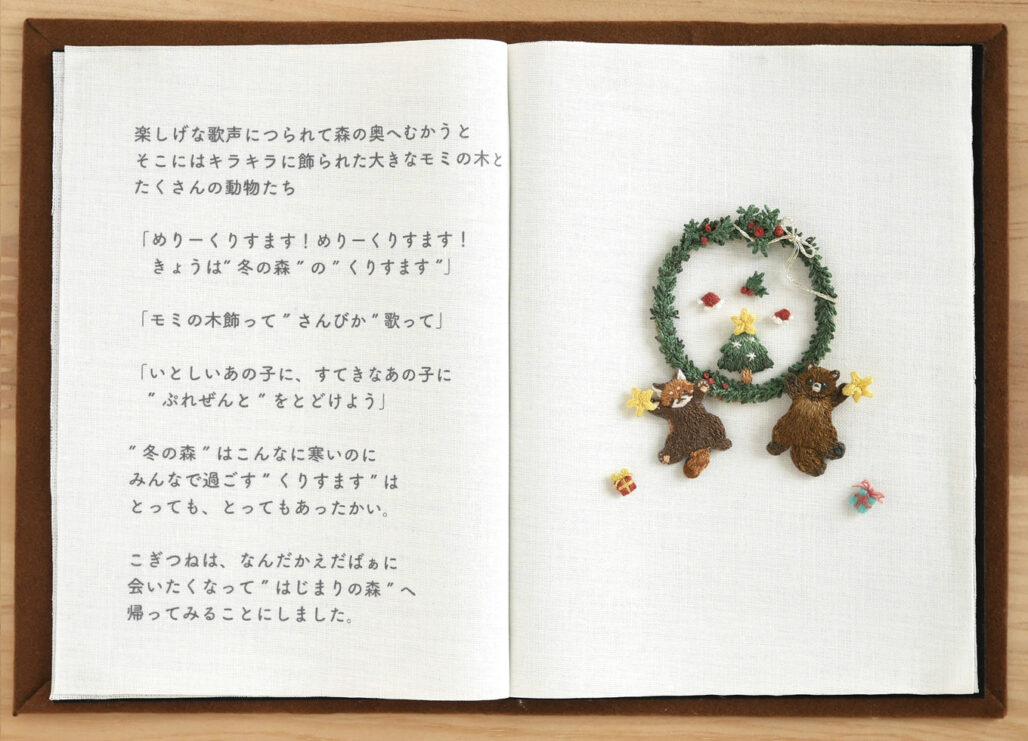 楽しげな歌声につられて森の奥へむかうと
そこにはキラキラに飾られた大きなモミの木と
たくさんの動物たち
「めりーくりすます！めりーくりすます！
きょうは”冬の森”の”くりすます”」
「モミの木飾って”さんびか”歌って」
「いとしいあの子に、すてきなあの子に
”ぷれぜんと”をとどけよう」
”冬の森”はこんなに寒いのに
みんなで過ごす”くりすます”は
とっても、とってもあったかい。
こぎつねは、なんだかえだばぁに
会いたくなって”はじまりの森”へ
帰ってみることにしました。